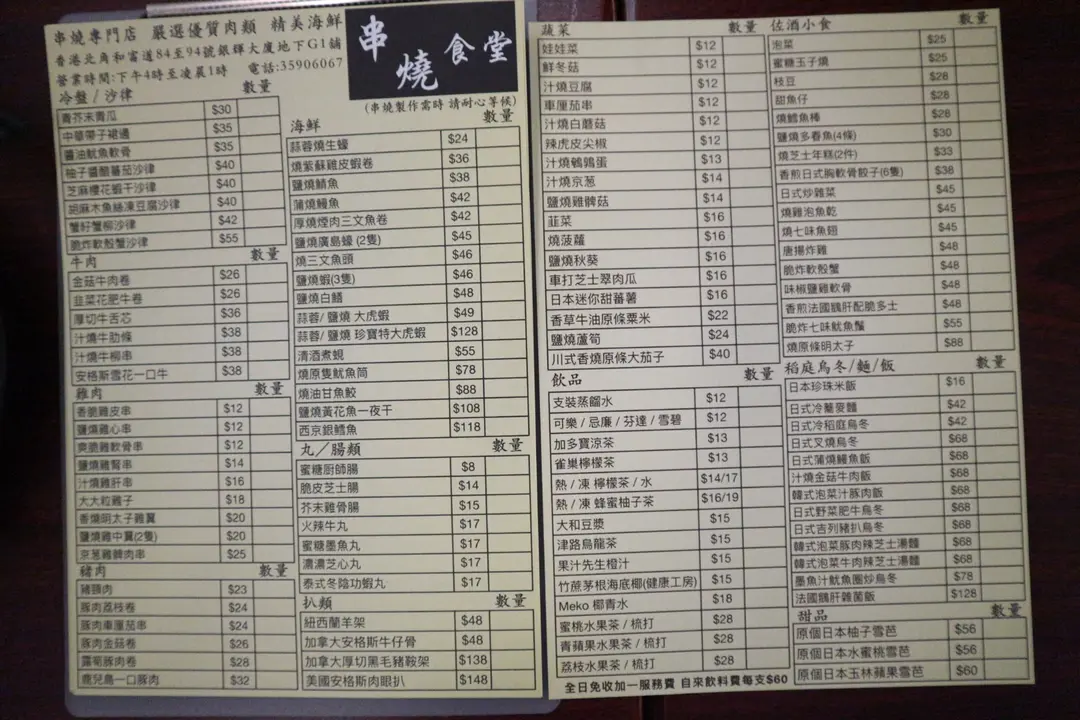 串燒專門店 嚴選優質肉類 精美海鮮
香港北角和富道84至94號銀輝大廈地下G1舖
營業時間:下午4時至凌晨1時 電話:35906067
串燒食堂
(串燒製作需時 請耐心等候)
冷盤 / 沙律 數量
青芥末青瓜 $30
中華帶子裙邊 $35
醬油魷魚軟骨 $35
柚子醬醋蕃茄沙律 $40
芝麻櫻花蝦干沙律 $40
胡麻木魚絲凍豆腐沙律 $40
蟹籽蟹柳沙律 $42
脆炸軟殼蟹沙律 $55
牛肉 數量
金菇牛肉卷 $26
韭菜花肥牛卷 $26
厚切牛舌芯 $36
汁燒牛肋條 $38
汁燒牛柳串 $38
安格斯雪花一口牛 $38
雞肉 數量
香脆雞皮串 $12
鹽燒雞心串 $12
爽脆雞軟骨串 $12
鹽燒雞腎串 $14
汁燒雞肝串 $16
大大粒雞子 $18
香燒明太子雞翼 $20
鹽燒雞中翼(2隻) $20
京葱雞髀肉串 $25
豬肉 數量
豬頸肉 $23
豚肉荔枝卷 $24
豚肉車厘茄串 $24
豚肉金菇卷 $26
露荀豚肉卷 $28
鹿兒島一口豚肉 $32
海鮮 數量
蒜蓉燒生蠔 $24
燒紫蘇雞皮蝦卷 $36
鹽燒鯖魚 $38
蒲燒鰻魚 $42
厚燒煙肉三文魚卷 $42
鹽燒廣島蠔 (2隻) $45
燒三文魚頭 $46
鹽燒蝦(3隻) $46
鹽燒白鱔 $48
蒜蓉/ 鹽燒 大虎蝦 $49
蒜蓉/ 鹽燒 珍寶特大虎蝦 $128
清酒煮蜆 $55
燒原隻魷魚筒 $78
燒油甘魚鮫 $88
鹽燒黃花魚一夜干 $108
西京銀鱈魚 $118
丸／腸類 數量
蜜糖厨師腸 $8
脆皮芝士腸 $14
芥末雞骨腸 $15
火辣牛丸 $17
蜜糖墨魚丸 $17
濃濃芝心丸 $17
泰式冬陰功蝦丸 $17
扒類 數量
紐西蘭羊架 $48
加拿大安格斯牛仔骨 $48
加拿大厚切黑毛豬鞍架 $138
美國安格斯肉眼扒 $148
蔬菜 數量
娃娃菜 $12
鮮冬菇 $12
汁燒豆腐 $12
車厘茄串 $12
汁燒白蘑菇 $12
辣虎皮尖椒 $12
汁燒鵪鶉蛋 $13
汁燒京葱 $14
鹽燒雞髀菇 $14
韮菜 $16
燒菠蘿 $16
鹽燒秋葵 $16
車打芝士翠肉瓜 $16
日本迷你甜蕃薯 $16
香草牛油原條粟米 $22
鹽燒蘆筍 $24
川式香燒原條大茄子 $40
飲品 數量
支裝蒸餾水 $12
可樂 / 忌廉 / 芬達 / 雪碧 $12
加多寶涼茶 $13
雀巢檸檬茶 $13
熱 / 凍 檸檬茶 / 水 $14/17
熱 / 凍 蜂蜜柚子茶 $16/19
大和豆漿 $15
津路烏龍茶 $15
果汁先生橙汁 $15
竹蔗茅根海底椰(健康工房) $15
Meko 椰青水 $18
蜜桃水果茶 / 梳打 $28
青蘋果水果茶 / 梳打 $28
荔枝水果茶 / 梳打 $28
佐酒小食 數量
泡菜 $25
蜜糖玉子燒 $25
枝豆 $28
甜魚仔 $28
燒鱈魚棒 $28
鹽燒多春魚(4條) $30
燒芝士年糕(2件) $33
香煎日式胸軟骨餃子(6隻) $38
日式炒雜菜 $45
燒雞泡魚乾 $45
燒七味魚翅 $45
唐揚炸雞 $48
脆炸軟殼蟹 $48
味椒鹽雞軟骨 $48
香煎法國鵝肝配脆多士 $48
脆炸七味魷魚鬚 $55
燒原條明太子 $88
稻庭烏冬/麵/飯 數量
日本珍珠米飯 $16
日式冷蕎麥麵 $42
日式冷稻庭烏冬 $42
日式叉燒烏冬 $68
日式蒲燒鰻魚飯 $68
汁燒金菇牛肉飯 $68
韓式泡菜汁豚肉飯 $68
日式野菜肥牛烏冬 $68
日式吉列豬扒烏冬 $68
韓式泡菜豚肉辣芝士湯麵 $68
韓式泡菜牛肉辣芝士湯麵 $68
墨魚汁魷魚圈炒烏冬 $78
法國鵝肝雜菌飯 $128
甜品 數量
原個日本柚子雪芭 $56
原個日本水蜜桃雪芭 $56
原個日本玉林蘋果雪芭 $60
全日免收加一服務費 自來飲料費每支$60